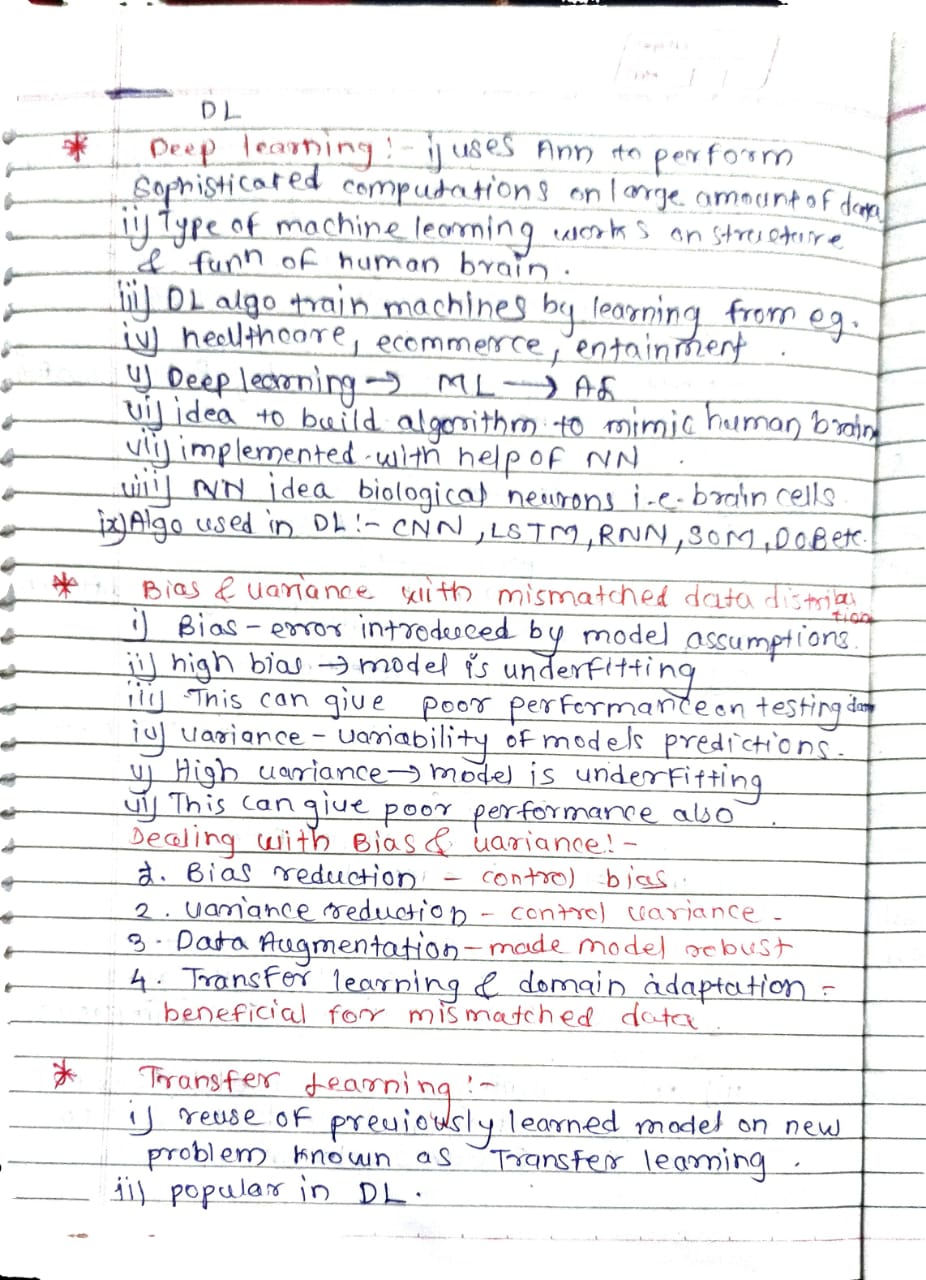 DL
* Deep learning :- i) uses Ann to perform
sophisticated computations on large amount of data
ii) Type of machine learning works on structure
& funn of human brain.
iii) DL algo train machines by learning from eg.
iv) healthcare, ecommerce, entainment.
v) Deep learning → ML → AI
vi) idea to build algorithm to mimic human brain
vii) implemented with help of NN.
viii) NN idea biological neurons i.e. brain cells
ix) Algo used in DL :- CNN, LSTM, RNN, SOM, DOB etc.
* Bias & variance with mismatched data distribu
tion
i) Bias - error introduced by model assumptions.
ii) high bias → model is underfitting
iii) This can give poor performance on testing data
iv) variance - variability of models predictions.
v) High variance → model is underfitting
vi) This can give poor performance also.
Dealing with Bias & variance :-
1. Bias reduction - control bias.
2. variance reduction - control variance.
3. Data Augmentation - made model robust
4. Transfer learning & domain adaptation -
beneficial for mismatched data
* Transfer Learning :-
i) reuse of previously learned model on new
problem known as Transfer learning.
ii) popular in DL.